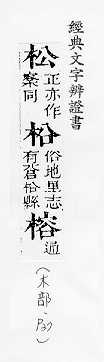 經典文字辨證書
松 正亦作
同
柗 俗地里志
有蒼柗縣
榕 通
(木部·P27)